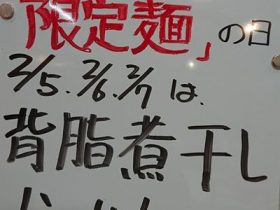 限定麺」の日
2/5.2/6.2/7は、
背脂煮干し